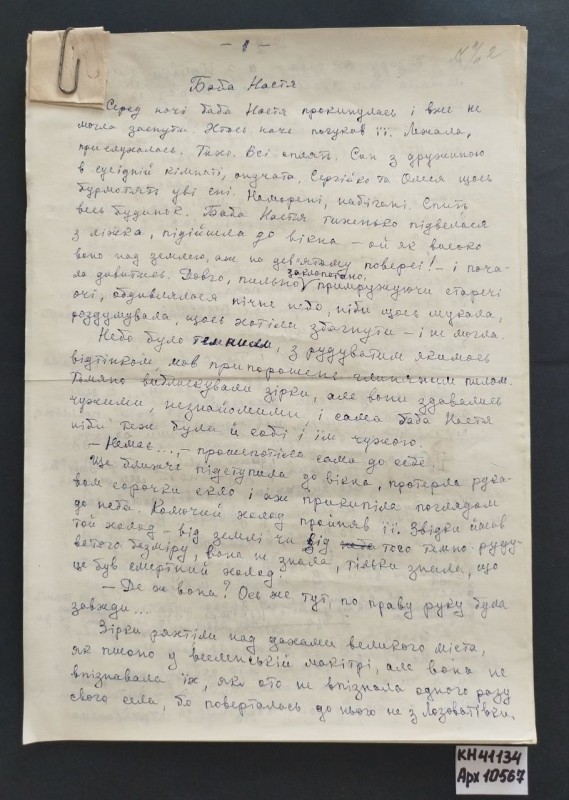 - 1 -
Баба Настя
Серед ночі баба Настя прокинулась і вже не
могла заснути. Хтось наче погукав її. Лежала,
прислухалась. Тихо. Всі сплять. Син з дружиною
в сусідній кімнаті, онучата. Сергійко та Олеся щось
бурмотять уві сні. Наморені, набігані. Спить
весь будинок. Баба Настя тихенько підвелася
з ліжка, підійшла до вікна – ой як високо
воно над землею, аж на дев'ятому поверсі! – і поча-
ла дивитись. Довго, пильно, заклопотано, примружуючи старечі
очі, обдивлялася нічне небо, ніби щось шукала,
роздумувала, щось хотіла збагнути – і не могла.
Небо було темним, з рудуватим якимось
відтінком мов припорошене глиняним пилом.
Тьмяно виблискували зірки, але вони здавались
чужими, незнайомими, і сама баба Настя
ніби теж була й собі і їм чужою.
– Немає..., – прошепотіла сама до себе.
Ще ближче підступила до вікна, протерла рука-
вом сорочки скло і аж прикипіла поглядом
до неба. Колючий холод пройняв її. Звідки йшов
той холод – від землі чи від того темно-руду-
ватого безміру, вона не знала, тільки знала, що
це був смертний холод.
– Де ж вона? Ось же тут, по праву руку була
завжди...
Зірки ряхтіли над дахами великого міста,
як пшоно у вселенській макітрі, але вона не
впізнавала їх, як ото не впізнала одного разу
свого села, бо поверталась до нього не з Лозоватівки,
КН 41134
Арх 10567